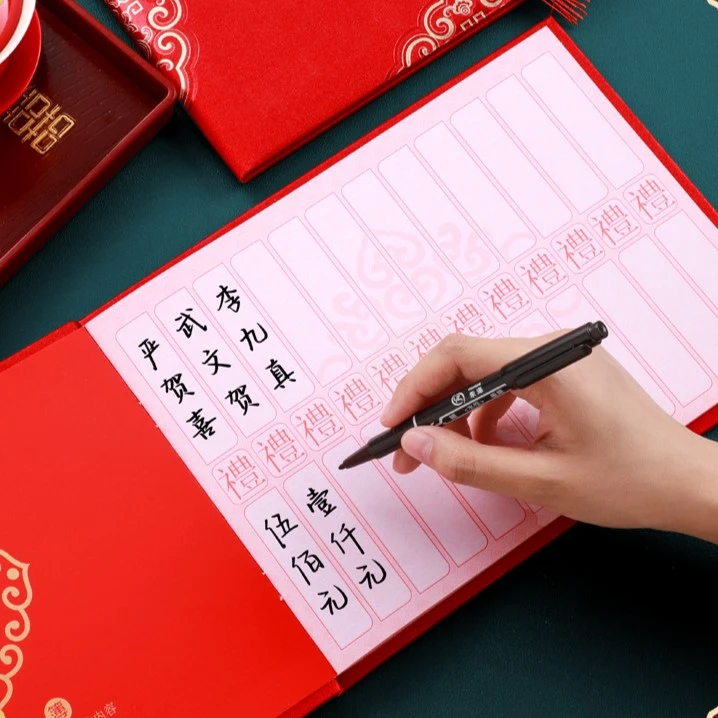 囍
严贺喜
武文贺
李九真
禮禮禮禮禮禮禮禮禮禮禮禮
伍佰元
壹仟元
内容